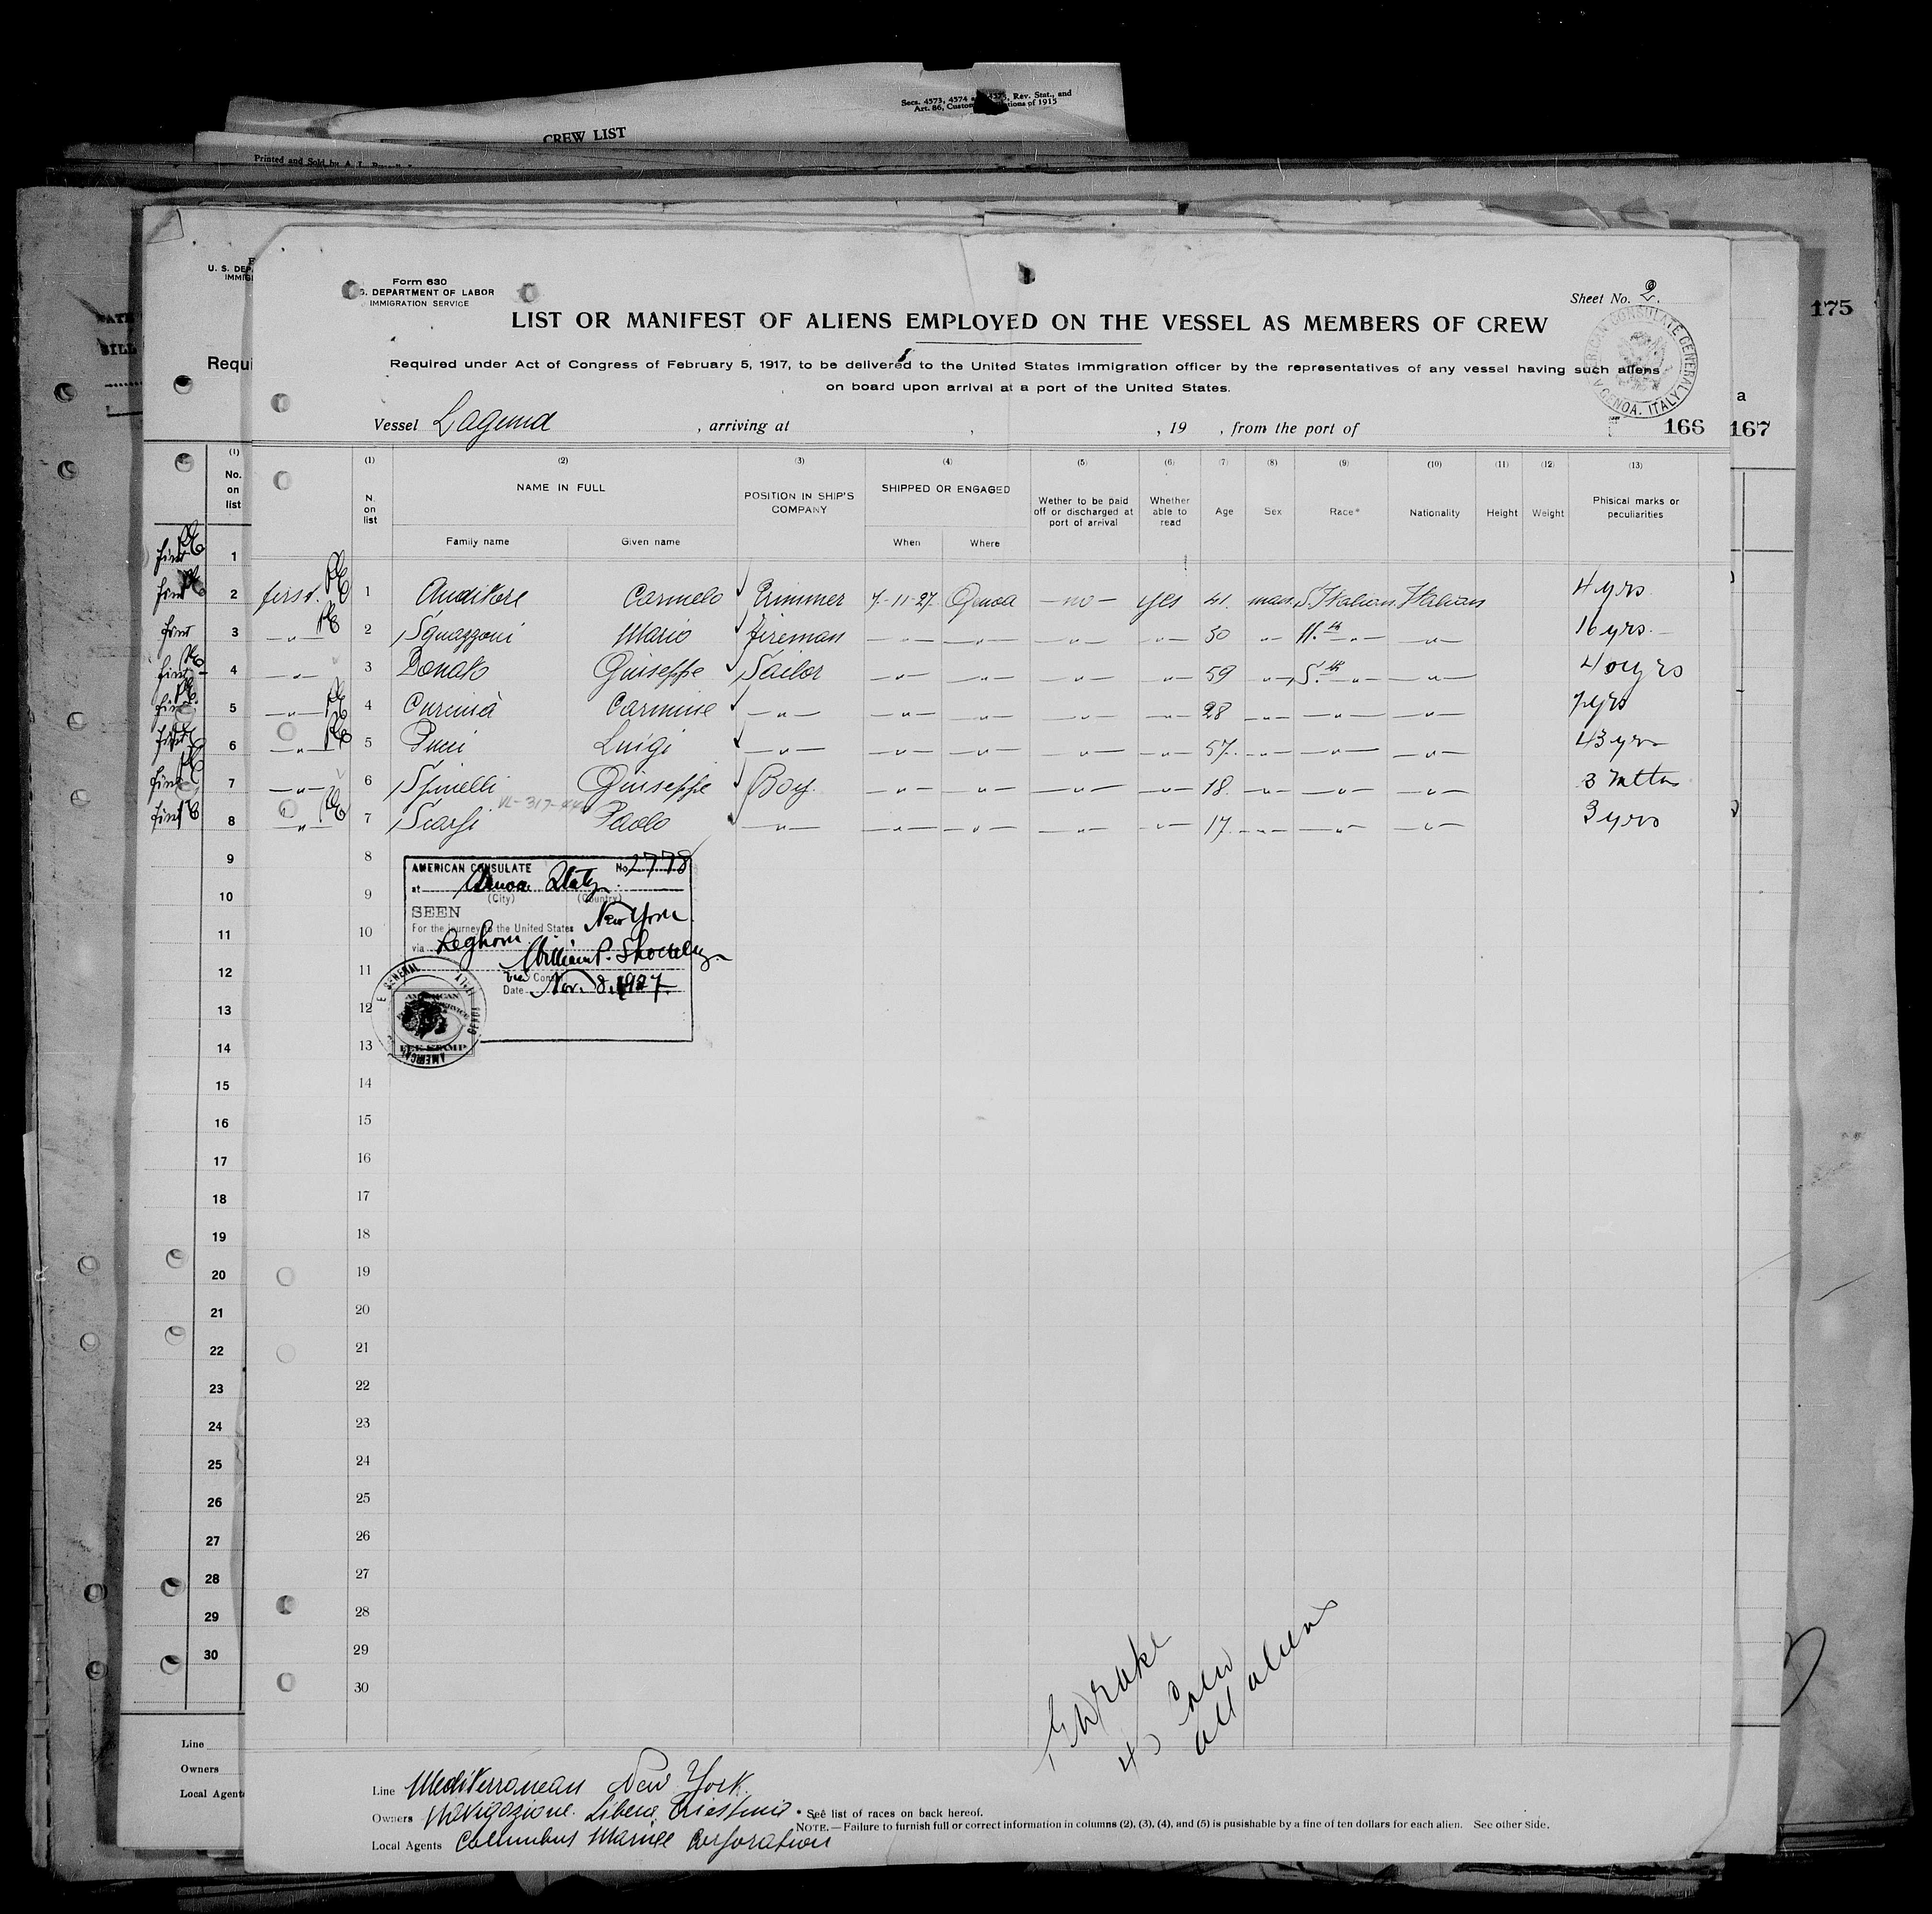 Secs. 4573, 4574 4575, Rev. Stat., and
Art. 86, Custom tions of 1915
CREW LIST
Printed and Sold by A. L.
175
Form 630
S. DEPARTMENT OF LABOR
IMMIGRATION SERVICE
Sheet No. 2.
LIST OR MANIFEST OF ALIENS EMPLOYED ON THE VESSEL AS MEMBERS OF CREW
AMERICAN CONSULATE GENERAL GENOA, ITALY
Required under Act of Congress of February 5, 1917, to be delivered to the United States immigration officer by the representatives of any vessel having such aliens
on board upon arrival at a port of the United States.
Vessel Laguna , arriving at , , 19 , from the port of 166
167
(1) (2) (3) (4) (5) (6) (7) (8) (9) (10) (11) (12) (13)
N. on list NAME IN FULL Family name Given name POSITION IN SHIP'S COMPANY SHIPPED OR ENGAGED When Where Wether to be paid off or discharged at port of arrival Whether able to read Age Sex Race* Nationality Height Weight Phisical marks or peculiarities
first. 1 Auditore Carmelo Trimmer 7-11-27 Genoa -no- yes 41. man S. Italian Italian 4 yrs
-"- 2 Squazzoni Mario fireman -"- -"- -"- -"- 30 -"- N.th -"- -"- 16 yrs.
-"- 3 Donato Giuseppe Sailor -"- -"- -"- -"- 59 -"- S.th -"- -"- 40 yrs
-"- 4 Carmine -"- -"- -"- -"- -"- 28 -"- -"- -"- 7 yrs
-"- 5 Pucci Luigi -"- -"- -"- -"- -"- 57. -"- -"- -"- 43 yrs
-"- 6 Spinelli Giuseppe Boy. -"- -"- -"- -"- 18. -"- -"- -"- 3 mths
-"- 7 Sciarfi Paolo -"- -"- -"- -"- -"- 17. -"- -"- -"- 3 yrs
8
9
10
11
12
13
14
15
16
17
18
19
20
21
22
23
24
25
26
27
28
29
30
AMERICAN CONSULATE No. 2778
at Genoa Italy
(City) (Country)
SEEN
For the journey to the United States New York
via Leghorn
William P. Shockley
Vice Consul
Date Nov. 8, 1927.
AMERICAN
FEE STAMP
Crew
all aliens
Line Mediterranean New York.
Owners Navigazione Libera Triestina
Local Agents Columbus Marine Corporation
* See list of races on back hereof.
NOTE.—Failure to furnish full or correct information in columns (2), (3), (4), and (5) is pusishable by a fine of ten dollars for each alien. See other side.
U. S. DEP
IMMIG
Requi
(1)
No. on list
1
2
3
4
5
6
7
8
9
10
11
12
13
14
15
16
17
18
19
20
21
22
23
24
25
26
27
28
29
30
Line
Owners
Local Agent